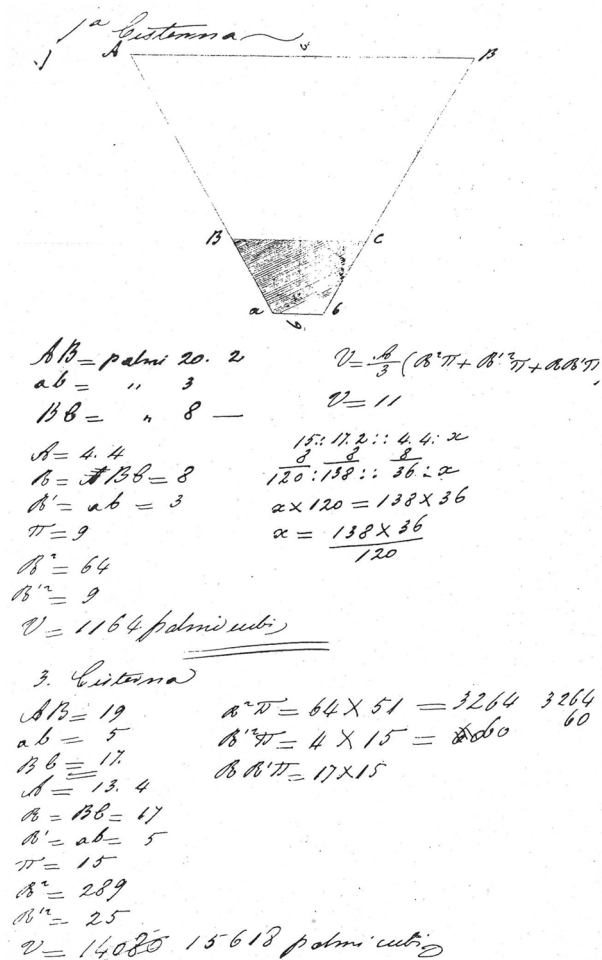 1ª Cisterna
A B
B C
a b
6
AB = palmi 20. 2
ab = " 3
Bb = " 8 —
A = 4. 4
R = Bb = 8
R' = ab = 3
π = 9
R² = 64
R'² = 9
V = 1164 palmi cubi
V = A/3 (R²π + R'²π + RR'π
V = 11
15 : 17. 2 :: 4. 4 : x
8 8 8
120 : 138 :: 36 : x
x × 120 = 138 × 36
x = 138 × 36
120
3. Cisterna
AB = 19
ab = 5
Bb = 17.
A = 13. 4
R = Bb = 17
R' = ab = 5
π = 15
R² = 289
R'² = 25
V = 14080 15618 palmi cubi
R²π = 64 × 51 = 3264 3264
R'²π = 4 × 15 = 60 60
RR'π = 17 × 15